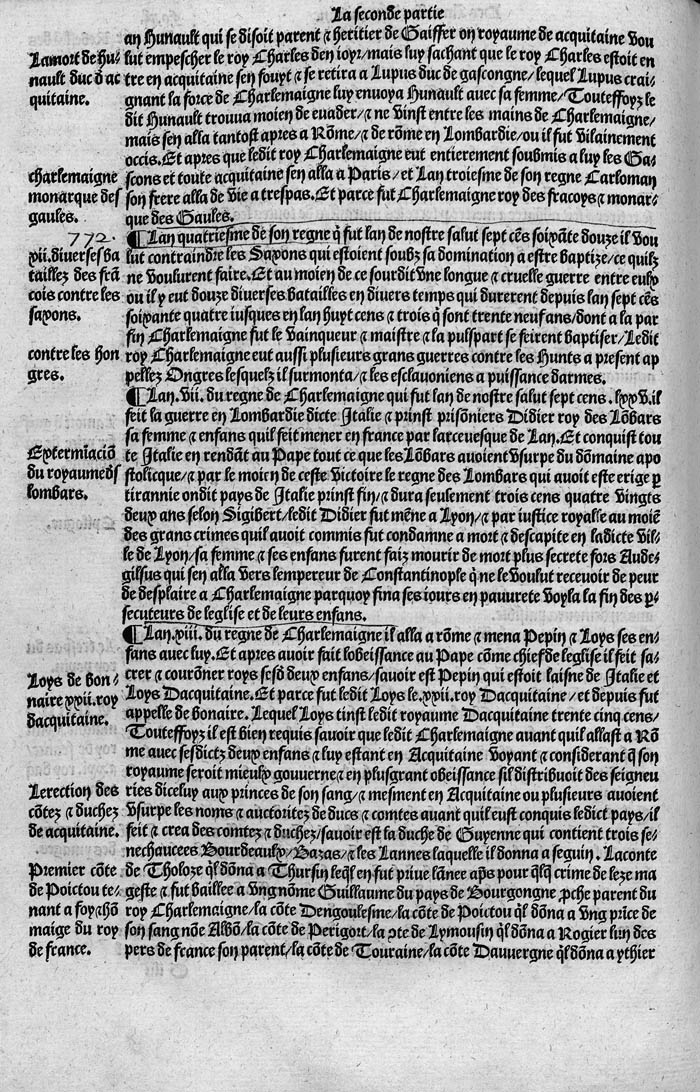 La seconde partie
an Hunault qui se disoit parent ⁊ heritier de Gaiffer on royaume de acquitaine vou
lut empescher le roy Charles den ioyr/mais luy sachant que le roy Charles estoit en
tre en acquitaine sen fouyt ⁊ se retira a Lupus duc de gascongne/lequel Lupus crai-
gnant la force de Charlemaigne luy enuoya Hunault auec sa femme/Touteffoyz le
dit Hunault trouua moien de euader/⁊ ne vinst entre les mains de Charlemaigne/
mais sen alla tantost apres a Rōme/⁊ de rōme en Lombardie/ou il fut vilainement
occis.Et apres que ledit roy Charlemaigne eut entierement soubmis a luy les Ga-
scons et toute acquitaine sen alla a Paris/et Lan troiesme de son regne Carloman
son frere alla de vie a trespas.Et parce fut Charlemaigne roy des frācoys ⁊ monar-
que des Gaules.
¶Lan quatriesme de son regne q̄ fut lan de nostre salut sept cēs soixāte douze il vou
lut contraindre les Saxons qui estoient soubz sa domination a estre baptize/ce quilz
ne voulurent faire.Et au moien de ce sourdit vne longue ⁊ cruelle guerre entre eulx
ou il y eut douze diuerses batailles en diuers temps qui durerent depuis lan sept cēs
soixante quatre iusques en lan huyt cens ⁊ trois q̄ sont trente neuf ans/dont a la par
fin Charlemaigne fut le vainqueur ⁊ maistre ⁊ la pulspart se feirent baptiser/Ledit
roy Charlemaigne eut aussi plusieurs grans guerres contre les Hunts a present ap
pellez Ongres lesquelz il surmonta/⁊ les esclavoniens a puissance darmes.
¶Lan.vii. du regne de Charlemaigne qui fut lan de nostre salut sept cens.lxxv.il
feit la guerre en Lombardie dicte Italie ⁊ prinst prisōniers Didier roy des Lōbars
sa femme ⁊ enfans quil feit mener en france par larceuesque de Lan.Et conquist tou
te Italie en rendāt au Pape tout ce que les Lōbars auoient vsurpe du dōmaine apo
stolicque/⁊ par le moien de ceste victoire le regne des Lombars qui auoit este erige ꝑ
tirannie ondit pays de Italie prinst fin/⁊ dura seulement trois cens quatre vingts
deux ans selon Sigibert/ledit Didier fut mēne a Lyon/⁊ par iustice royalle au moiē
des grans crimes quil auoit commis fut condamne a mort ⁊ descapite en ladicte vil-
le de Lyon/sa femme ⁊ ses enfans furent faiz mourir de mort plus secrete fors Aude-
gilsus qui sen alla vers lempereur de Constantinople q̄ ne le voulut receuoir de peur
de desplaire a Charlemaigne parquoy fina ses iours en pauurete voyla la fin des ꝑ-
secuteurs de leglise et de leurs enfans.
¶Lan.xiii. du regne de Charlemaigne il alla a rōme ⁊ mena Pepin ⁊ Loys ses en-
fans auec luy.Et apres auoir fait lobeissance au Pape cōme chief de leglise il feit sa-
crer ⁊ courōner roys sesd̄ deux enfans/sauoir est Pepin qui estoit laisne de Italie et
Loys Dacquitaine.Et parce fut ledit Loys le.xxii.roy Dacquitaine/et depuis fut
appelle de bonaire.Lequel Loys tinst ledit royaume Dacquitaine trente cinq cens/
Touteffoyz il est bien requis sauoir que ledit Charlemaigne auant quil allast a Rō
me auec sesdictz deux enfans ⁊ luy estant en Acquitaine voyant ⁊ considerant q̄ son
royaume seroit mieulx gouuerne ⁊ en plusgrant obeissance sil distribuoit des seigneu
ries diceluy aux princes de son sang/⁊ mesment en Acquitaine ou plusieurs auoient
vsurpe les noms ⁊ auctoritez de duces ⁊ comtes auant quil eust conquis ledict pays/il
feit ⁊ crea des comtez ⁊ duchez/sauoir est la duche de Guyenne qui contient trois se-
nechaucees Bourdeaulx/Bazas/⁊ les Lannes laquelle il donna a seguin. Laconte
de Tholoze q̄l dōna a Thursin leq̄l en fut priue lānee ap̄s pour q̄lq̄ crime de leze ma
geste ⁊ fut baillee a vng nōme Guillaume du pays de Bourgongne ꝓche parent du
roy Charlemaigne/la cōte Dengoulesme/la cōte de Poictou q̄l dōna a vng prīce de
son sang nōe Albō/la cōte de Perigort/la ↄte de Lymousin q̄l dōna a Rogier lun des
pers de france son parent/la cōte de Touraine/la cōte Dauuergne q̄l dōna a ythier
La mort de hu-
nault duc d ac
quitaine.
charlemaigne
monarque des
gaules.
772.
xii.diuerses ba
taillez des frā
cois contre les
saxons.
contre les hon
gres.
Extermīaciō
du royaume ds
lombars.
Loys de bon-
naire xxii.roy
dacquitaine.
Lerection des
cōtez ⁊ duchez
de acquitaine.
Premier cōte
de Poictou te-
nant a foy ⁊ hō
maige du roy
de france.